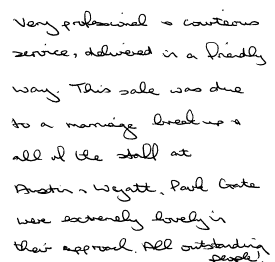 Very professional & courteous
service, delivered in a friendly
way. This sale was due
to a marriage break up &
all of the staff at
Austin & Wyatt, Park Gate
were extremely lovely in
their approach. All outstanding
people!